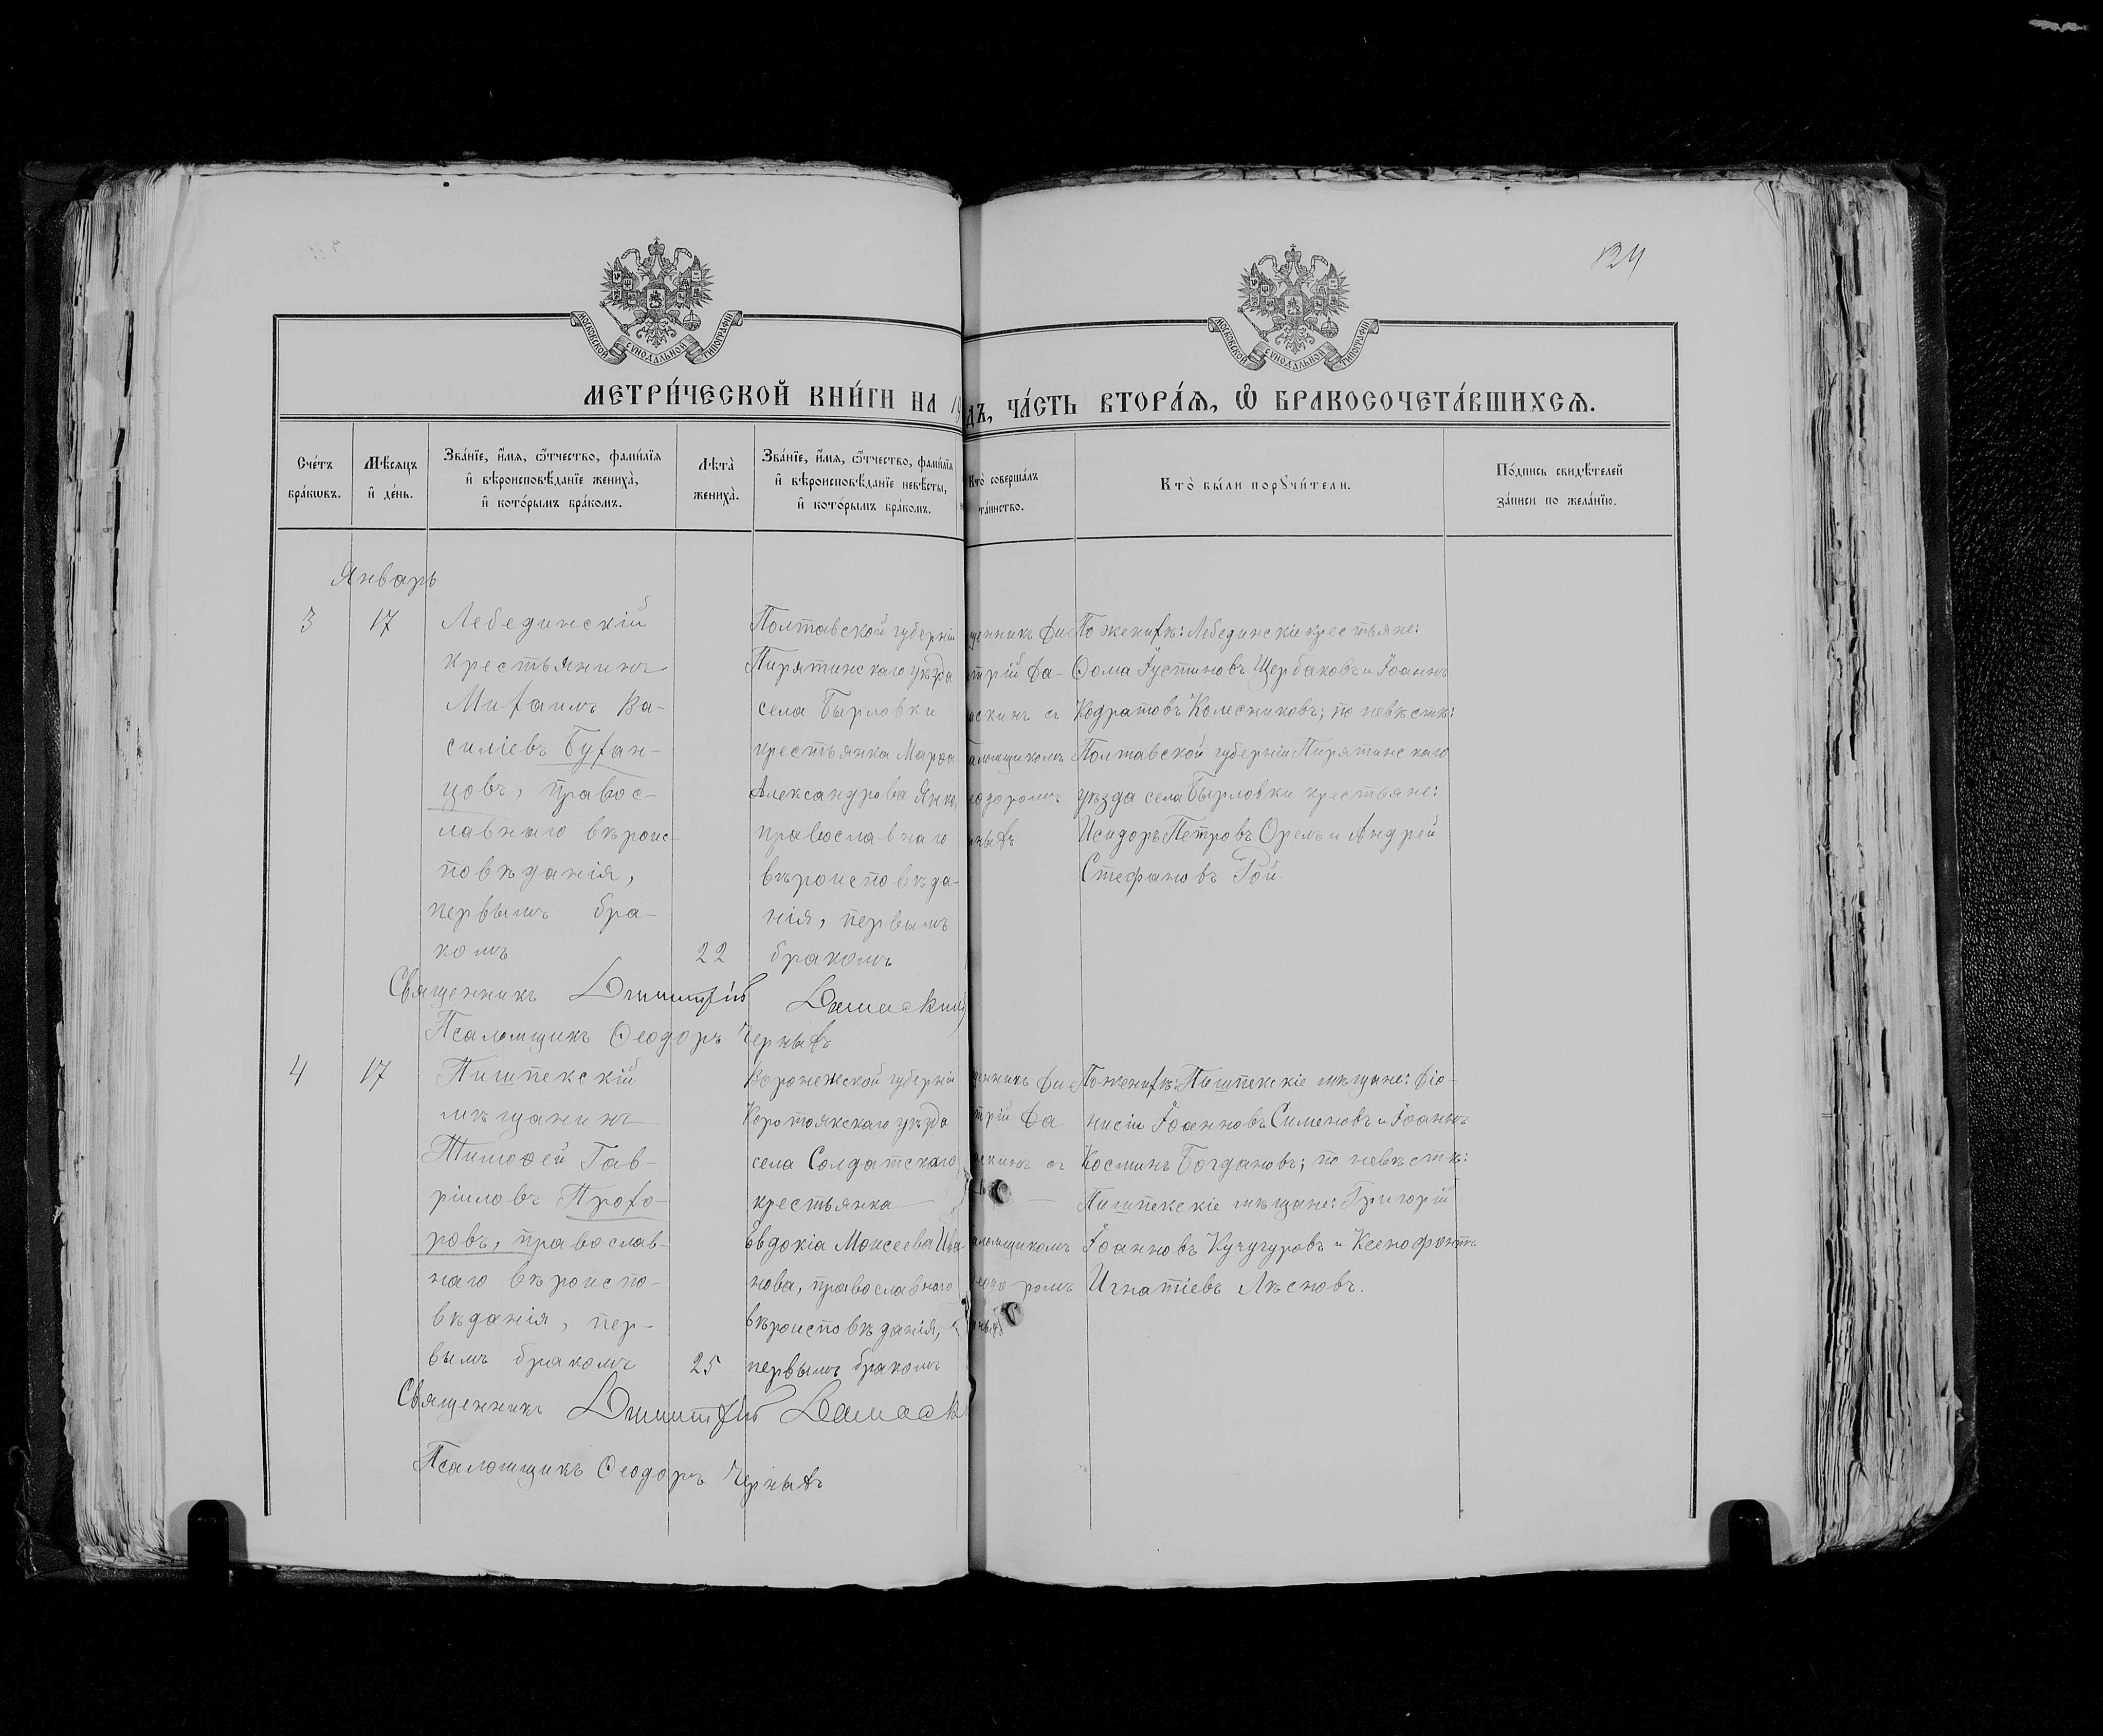 134
МОСКОВСКОЙ СУНОДАЛЬНОЙ ТИПОГРАФІИ
МОСКОВСКОЙ СУНОДАЛЬНОЙ ТИПОГРАФІИ
МЕТРИ́ЧЕСКОЙ КНИ́ГИ НА 19
ДЪ, ЧА́СТЬ ВТОРА́Ѧ, Ѽ БРАКОСОЧЕТА́ВШИХСѦ.
Сче́тъ
бра́кѡвъ.
Мѣ́сяцъ
и҆ де́нь.
Зва́нїе, и҆́мѧ, ѻ҆́тчество, фами́лїѧ
и҆ вѣроисповѣ́данїе жениха̀,
и҆ кото́рымъ бра́комъ.
Лѣта̀
жениха̀.
Зва́нїе, и҆́мѧ, ѻ҆́тчество, фами́лїѧ
и҆ вѣроисповѣ́данїе невѣ́сты,
и҆ кото́рымъ бра́комъ.
Кто̀ соверша́лъ
та́инство.
Кто̀ бы́ли порꙋчи́тели.
По́дпись свидѣ́телей
за́писи по жела́нїю.
Январь
3
17
Лебединскій
крестьянинъ
Михаилъ Ва-
силіевъ Бухан-
цовъ, правос-
лавнаго вѣроис-
повѣданія,
первымъ бра-
комъ
22
Полтавской губерніи
Пирятинскаго уѣзда
села Бырловки
крестьянка Марѳа
Александрова Янко,
православнаго
вѣроисповѣда-
нія, первымъ
бракомъ
щенникъ Ди
трій Да-
аскинъ съ
аломщикомъ
еодоромъ
рныхъ
По женихѣ: Лебединскіе крестьяне:
Ѳома Іустиновъ Щербаковъ и Іоаннъ
Кодратовъ Колесниковъ; по невѣстѣ:
Полтавской губерніи Пирятинскаго
уѣзда села Бырловки крестьяне:
Исидоръ Петровъ Орелъ и Андрей
Стефановъ Гой
Священникъ Димитрій Дамаскинъ
Псаломщикъ Ѳеодоръ Черныхъ
4
17
Пишпекскій
мѣщанинъ
Тимоѳей Гав-
ріиловъ Прохо-
ровъ, православ-
наго вѣроиспо-
вѣданія, пер-
вымъ бракомъ
25
Воронежской губерніи
Коротоякскаго уѣзда
села Солдатскаго
крестьянка
Евдокіа Моисеева Ива
нова, православнаго
вѣроисповѣданія,
первымъ бракомъ
щенникъ Ди
трій Да
скинъ съ
аломщикомъ
ромъ
рныхъ
По женихѣ: Пишпекскіе мѣщане: Діо-
нисій Іоанновъ Сименовъ и Іоаннъ
Косминъ Богдановъ; по невѣстѣ:
Пишпекскіе мѣщане: Григорій
Іоанновъ Кучугуровъ и Ксенофонтъ
Игнатіевъ Лѣсновъ.
Священникъ Димитрій Дамаск
Псаломщикъ Ѳеодоръ Черныхъ